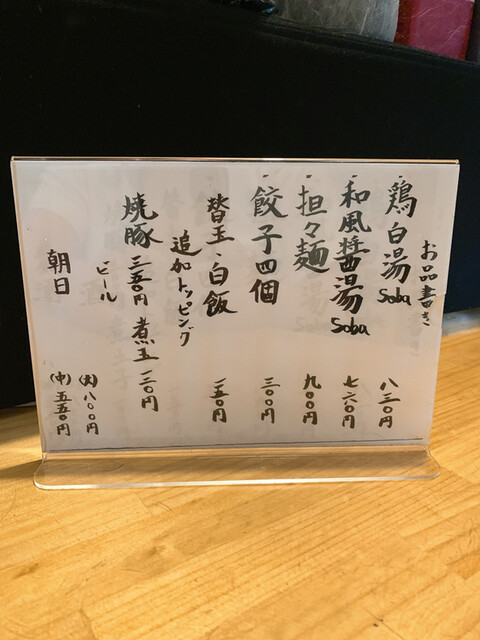 お品書き
・鶏白湯Soba 八三〇円
・和風醤湯Soba 七六〇円
・担々麺 九〇〇円
・餃子四個 三〇〇円
替玉・白飯 一五〇円
追加トッピング
焼豚 三五〇円 煮玉 一二〇円
ビール
朝日 (大) 八〇〇円
(中) 五五〇円